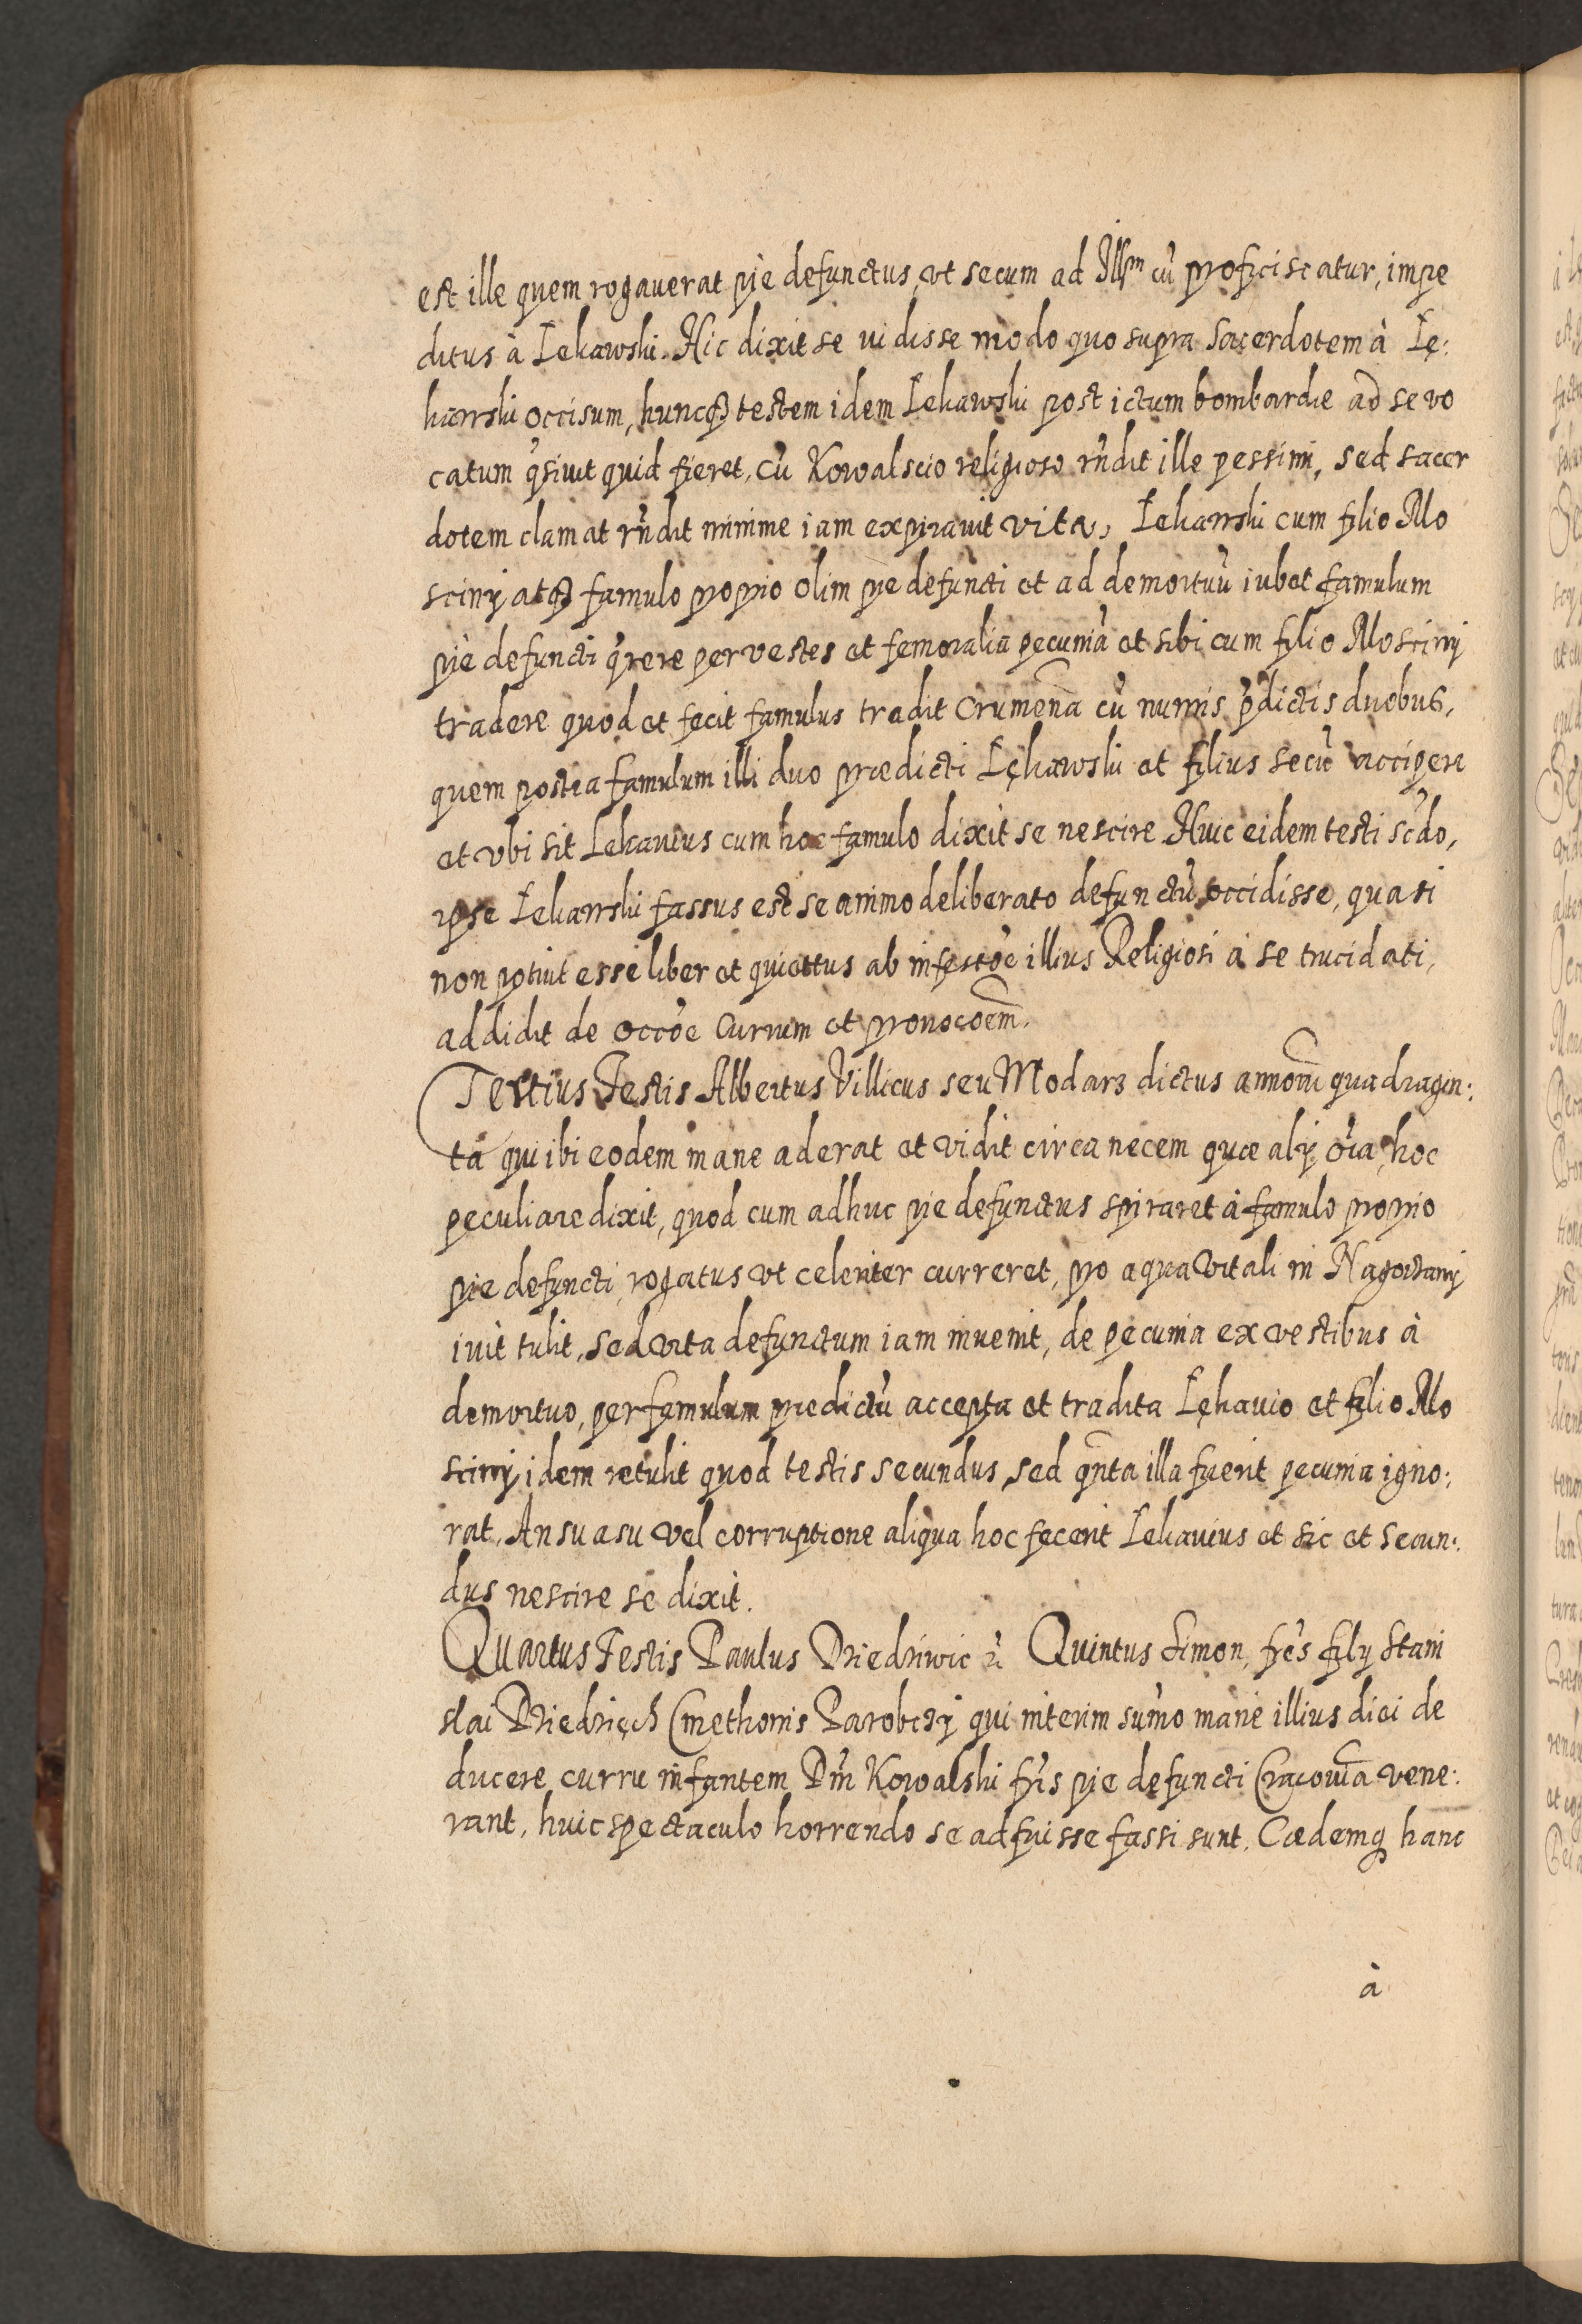 est ille quem rogauerat piè defunctus, vt secum ad Illm cũ proficiscatur, impe
ditus à Lekawski. Hic dixit se vidisse modo quo supra Sacerdotem à Lę:
kawski occisum, huncq₃ testem idem Lekawski post ictum bombardæ ad se vo
catum q̃siuit quid fieret, cũ Kowalscio religioso rñdit ille pessimi, sed sacer
dotem clamat rñdit minime iam expirauit vita, Lekawski cum filio Mo
sciny atq₃ famulo proprio olim piè defuncti et ad demortuũ iubet famulum
piè defuncti q̃rere per vestes et femoralia pecuniã et sibi cum filio Mosciny
tradere quod et fecit famulus tradit Crumenã cũ numis p̃dictis duobus,
quem postea famulum illi duo prædicti Lękawski et filius secũ accipere
et vbi sit Lekauius cum hoc famulo dixit se nescire Huic eidem testi scd̃o,
ipse Lekawski fassus est se animo deliberato defunctũ occidisse, quasi
non potiut esse liber et quiettus ab infestõe illius Religiosi à se trucidati,
addidit de occõe Currum et prouocoẽm.
Tertius Testis Albertus Villicus seu Modarz dictus annorũ quadragin:
ta qui ibi eodem mane aderat et vidit circa necem quæ alÿ õia, hoc
peculiare dixit, quod cum adhuc piè defunctus spiraret à famulo proprio
piè defuncti, rogatus vt celeriter curreret, pro aqua vitali in Nagorzany
iuit tulit, sed vita defunctum iam inuenit, de pecunia ex vestibus à
demortuo, per famulum prædictũ accepta et tradita Lękauio et filio Mo
sciny idem retulit quod testis secundus, sed qñta illa fuerit pecunia igno:
rat. An suasu vel corruptione aliqua hoc fecerit Lekauius et sic et secun:
dus nescire se dixit.
Quartus Testis Paulus Dziedziwic Quintus Simon, frẽs filÿ Stani
slai Dziedzięch Cmethonis Parobczÿ qui interim sũmo mane illius diei de
ducere curru infantem Dñi Kowalski fr̃is piè defuncti Cracouiã vene:
rant, huic spectaculo horrendo se adfuisse fassi sunt. Cædemq hanc
à